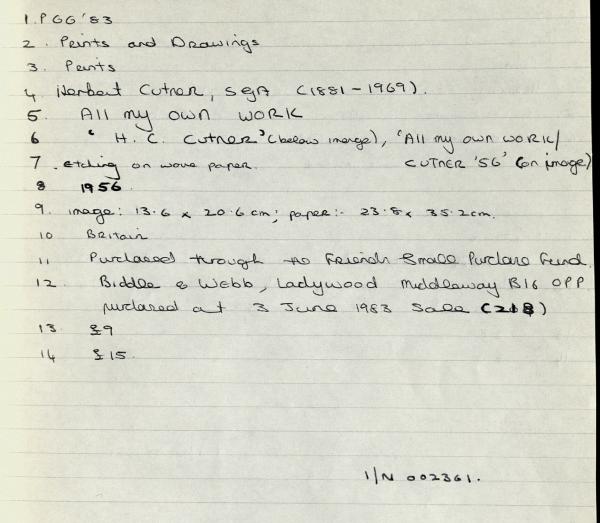 1. P 66 '83
2. Prints and Drawings
3. Prints
4 Herbert Cutner, SGA (1881-1969).
5. All my own WORK
6 ' H. C. Cutner' (below image), 'All my own WORK/
7. etching on wove paper. CUTNER '56' (on image)
8 1956
9. image: 13.6 x 20.6 cm; paper:- 23.8 x 35.2cm.
10 Britain
11 Purchased through the Friends Small Purchase Fund.
12. Biddle & Webb, Ladywood Middleway B16 OPP
purchased at 3 June 1983 Sale (218)
13 £9
14 £15.
I/N 002361.